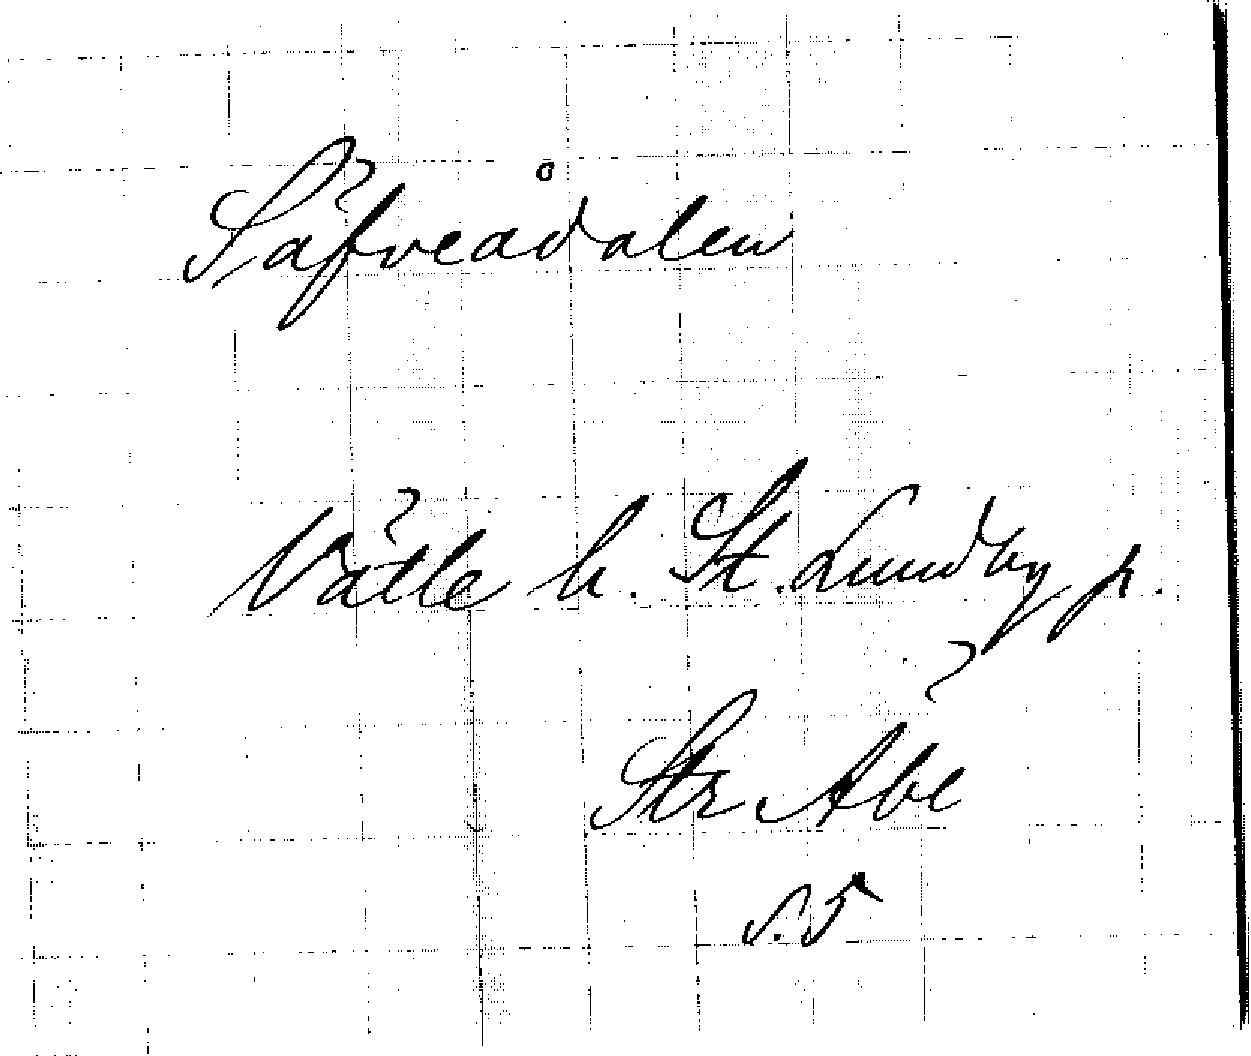 Säfveådalen
Vätle h. St. Lundby p.
Str Abé
s. 5